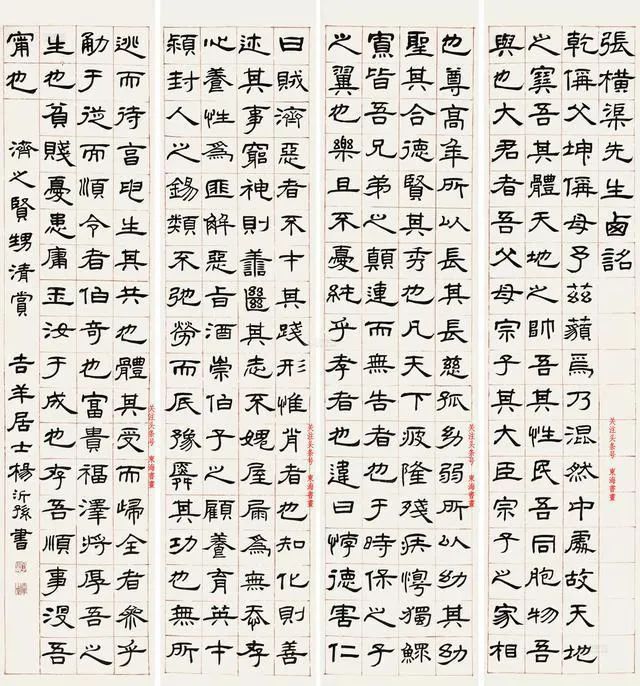 張橫渠先生卥詺
乾偁父坤偁母予茲藐焉乃混然中處故天地
之塞吾其體天地之帥吾其性民吾同胞物吾
與也大君者吾父母宗子其大臣宗子之家相
也尊高年所以長其長慈孤幼弱所以幼其幼
聖其合德賢其秀也凡天下疲隆殘疾惸獨鰥
寡皆吾兄弟之顛連而無告者也于時保之子
之翼也樂且不憂純乎孝者也違曰悖德害仁
曰賊濟惡者不才其踐形惟肖者也知化則善
述其事窮神則善繼其志不媿屋扁為無忝存
心養性為匪解惡旨酒崇伯子之顧養育英才
潁封人之錫類不弛勞而厎豫舜其功也無所
逃而待亯申生其共也體其受而歸全者參乎
勈于從而順令者伯奇也富貴福澤將厚吾之
生也貧賤憂患庸玉汝于成也存吾順事沒吾
甯也
濟之賢甥清賞 吉羊居士楊沂孫書
关注头条号 東海書畫
关注头条号 東海書畫
关注头条号 東海書畫
关注头条号 東海書畫